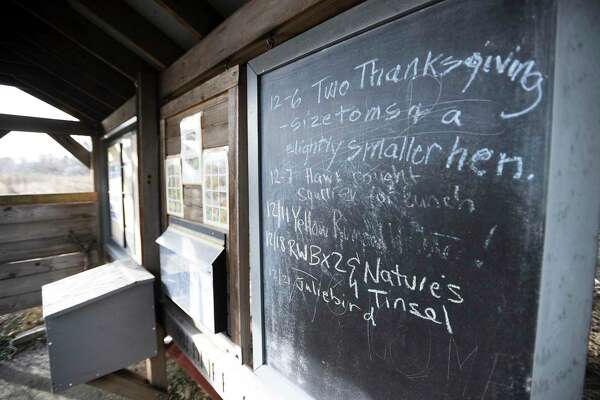 12-6 Two Thanksgiving
-size toms & a
slightly smaller hen.
12-7 Hawk caught
squirrel for lunch
12/11 Yellow
12/18 RWBX2 & Nature's
Tinsel
12/21 Juliebird